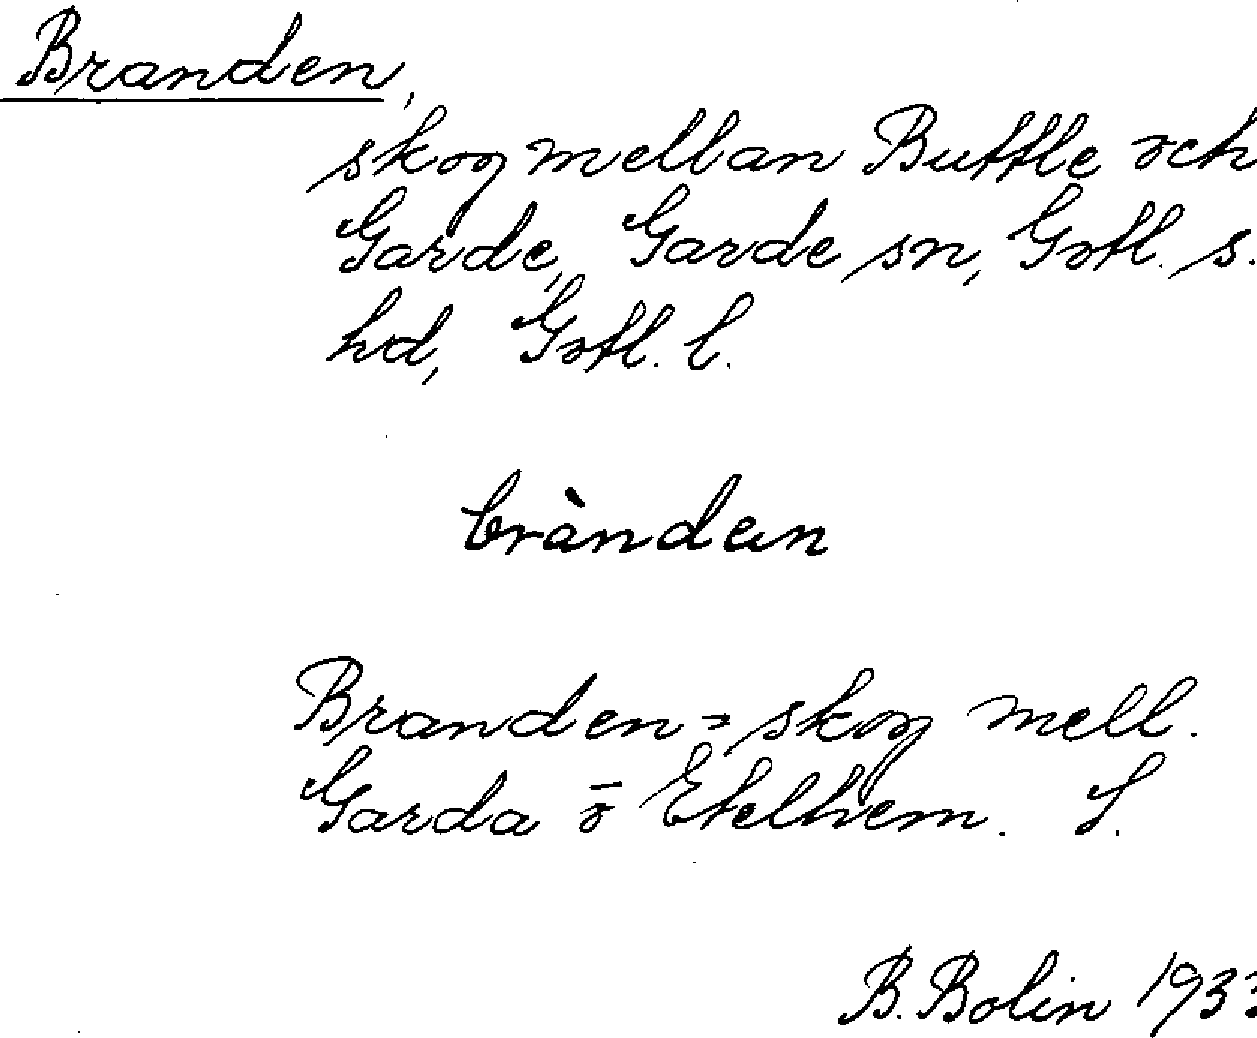 Branden,
skog mellan Buttle och
Garde, Garde sn, Gotl. s.
hd, Gotl. l.
bràndæn
Branden = skog mell.
Garda o Etelhem. S.
B. Bolin 1933